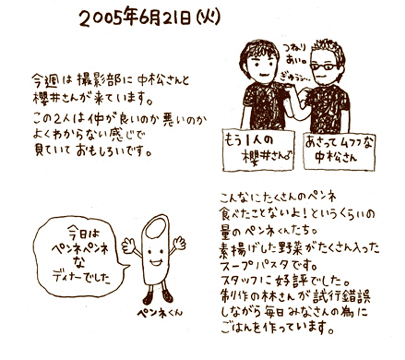 2005年6月21日(火)
今週は撮影部に中松さんと
櫻井さんが来ています。
この2人は仲が良いのか悪いのか
よくわからない感じで
見ていておもしろいです。
つねり
あい。
ぎゅうぅ…
もう1人の
櫻井さん♂
あさってムフフな
中松さん
こんなにたくさんのペンネ
食べたことないよ!というくらいの
量のペンネくんたち。
素揚げした野菜がたくさん入った
スープパスタです。
スタッフに好評でした。
制作の林さんが試行錯誤
しながら毎日みなさんの為に
ごはんを作っています。
今日は
ペンネペンネ
な
ディナーでした
ペンネくん